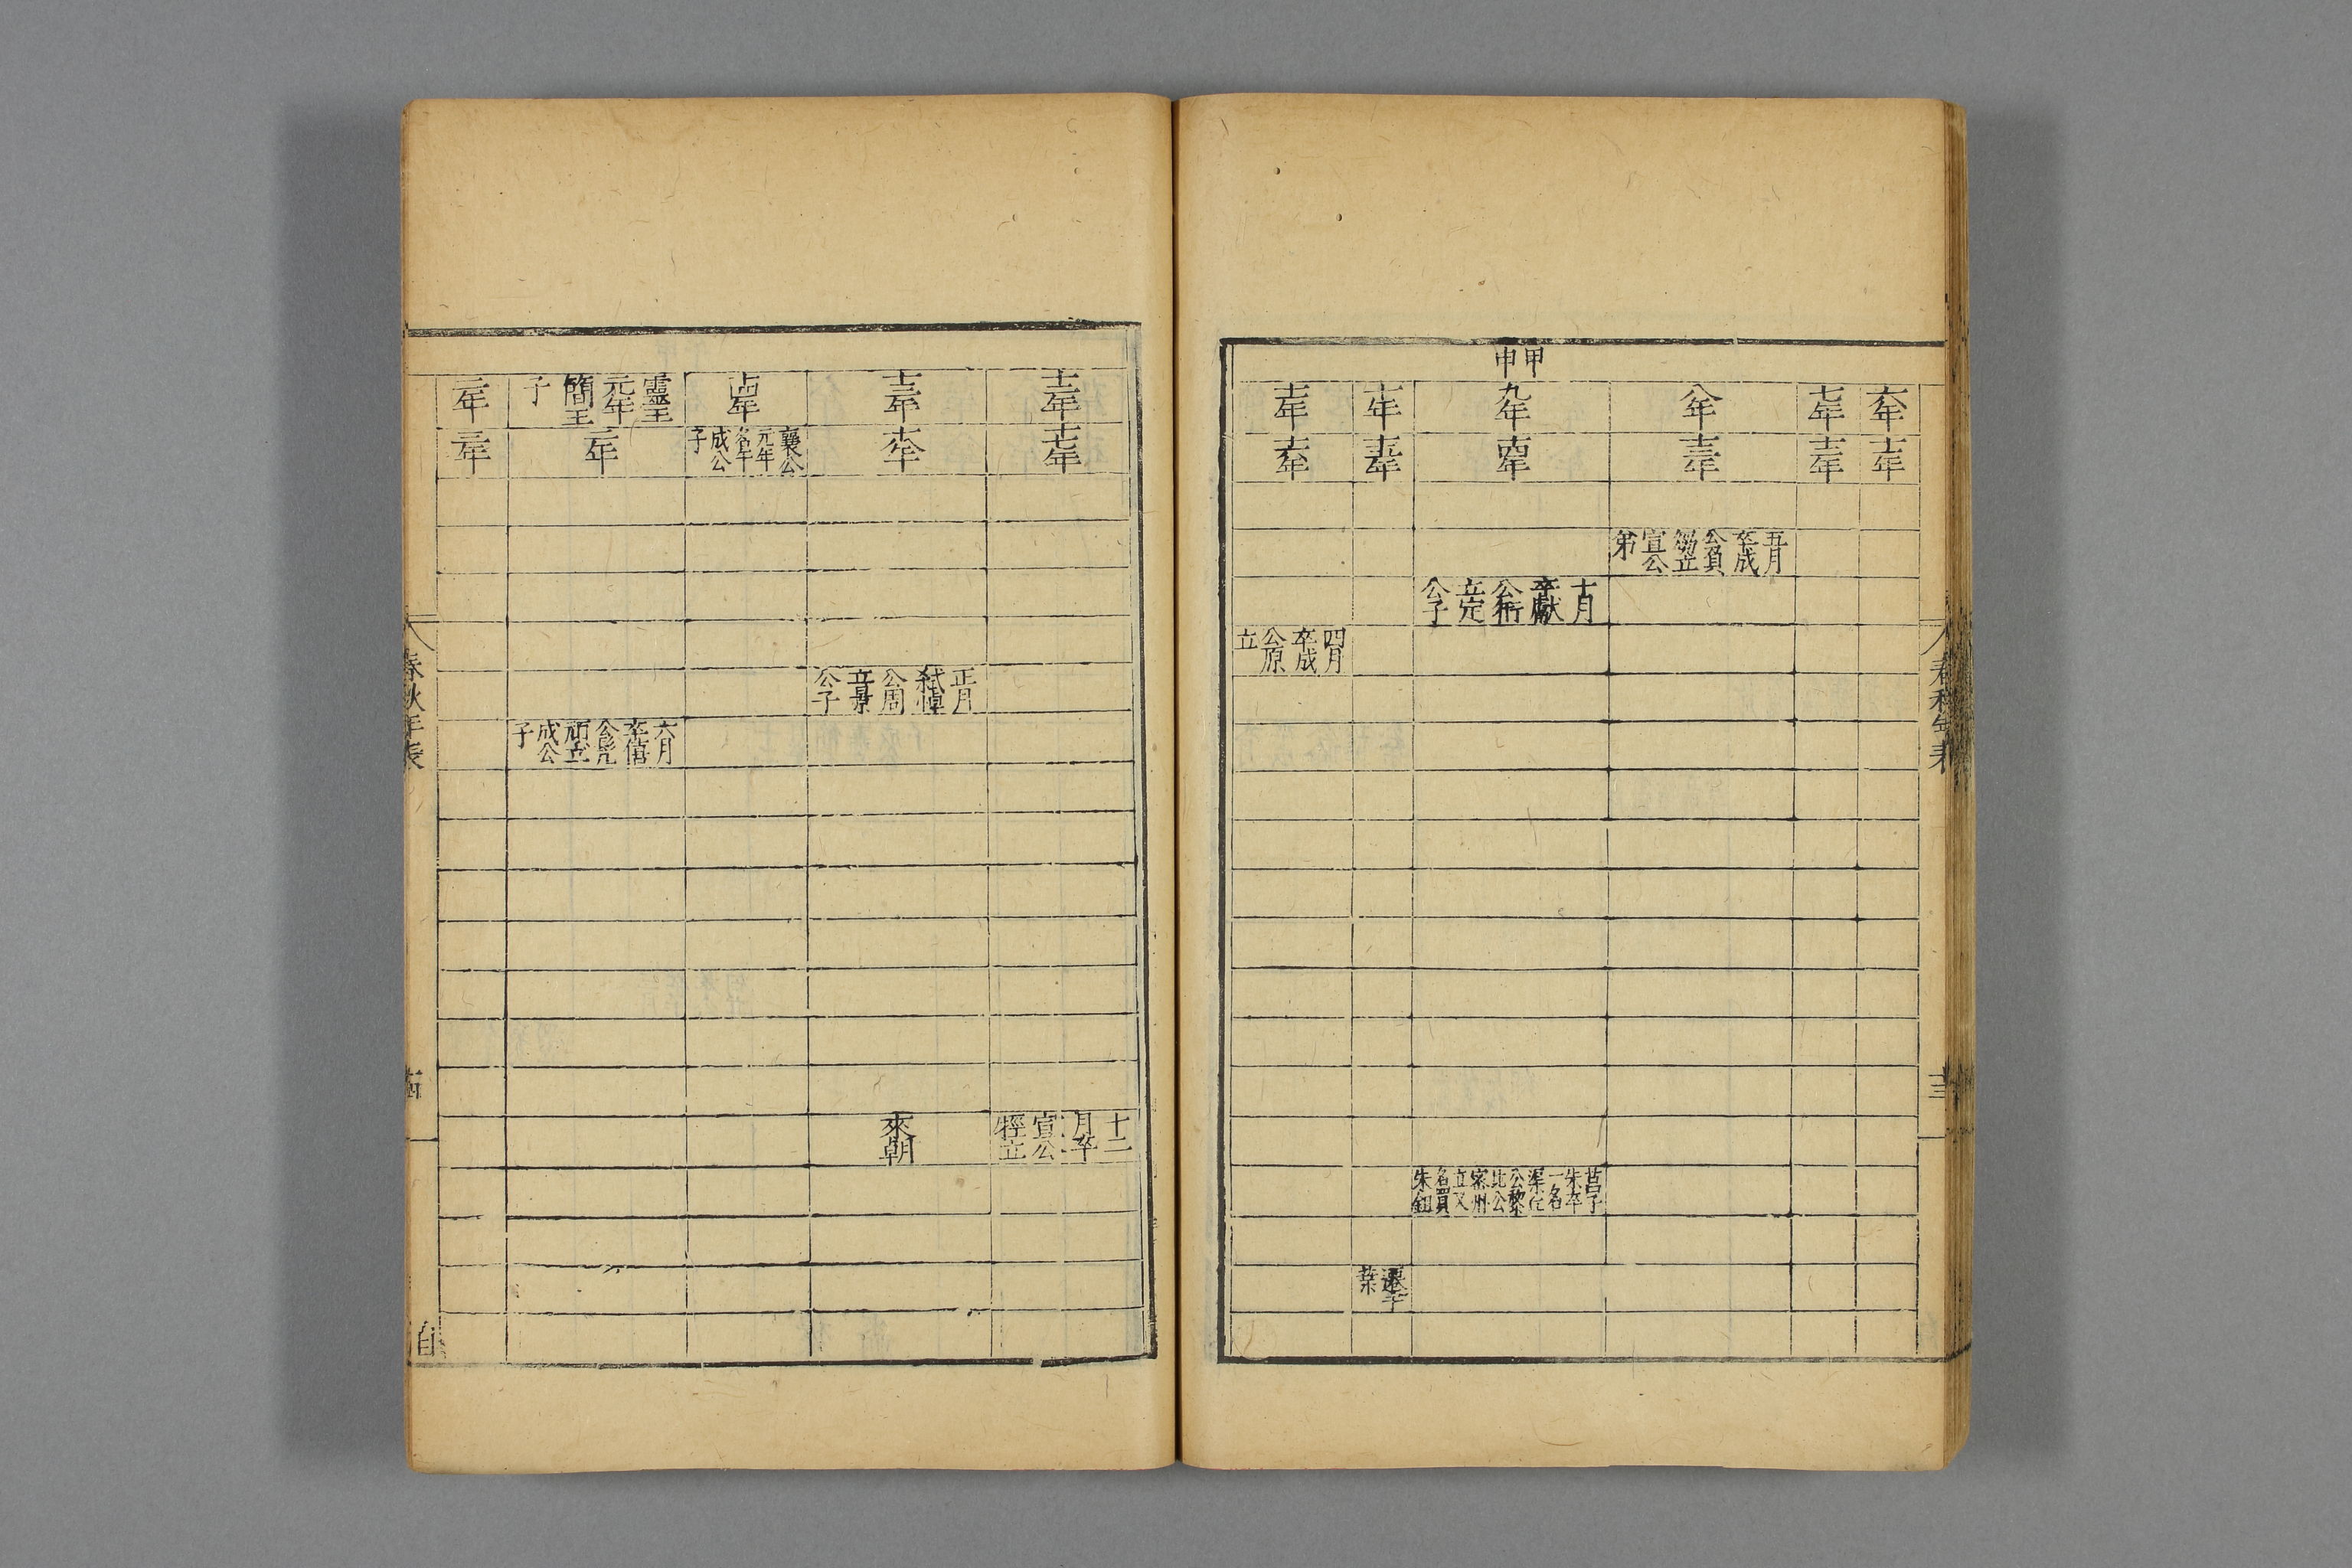 春秋年表
十三
六年
十一年
七年
十二年
八年
十三年
五月
卒成
公負
芻立
宣公
弟
甲
申
九年
十四年
十月
卒獻
公衎
立定
公子
莒子
朱卒
一名
渠丘
公黎
比公
密州
立又
名買
朱鉏
十年
十五年
遷于
葉
十一年
十六年
四月
卒成
公原
立
十二年
十七年
十二
月卒
宣公
牼立
十三年
十八年
正月
弒悼
公周
立景
公子
來朝
十四年
襄公
元年
名午
成公
子
靈王
元年
簡王
子
二年
六月
卒僖
公髡
頑立
成公
子
二年
三年
春秋年表
十四